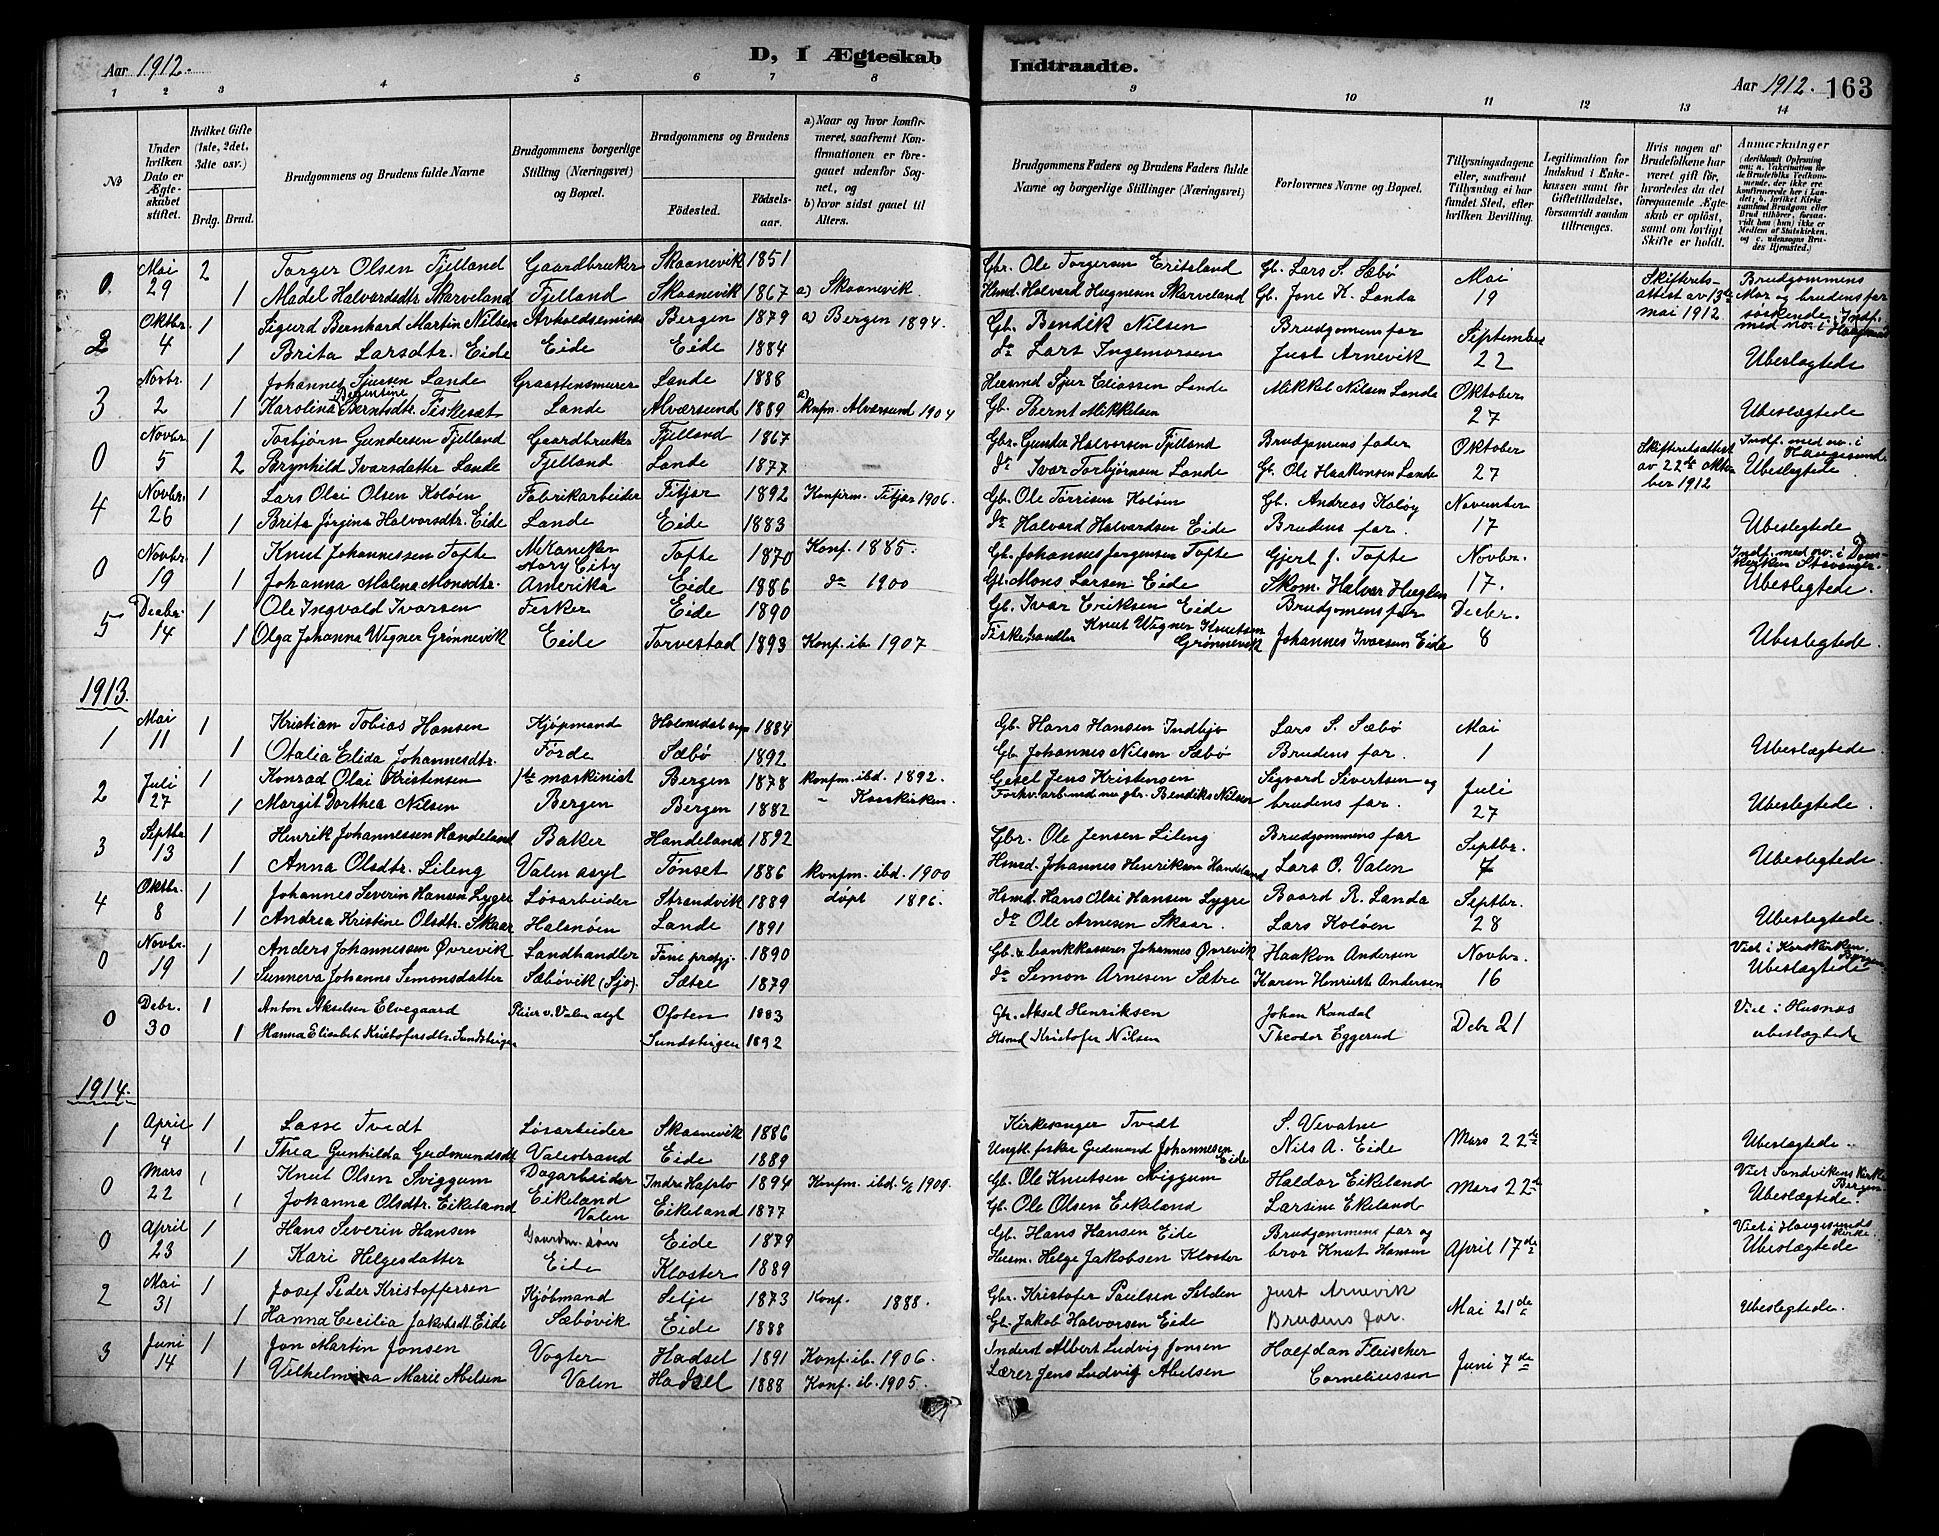 Aar 1912.
D, I Ægteskab
Indtraadte.
Aar 1912. 163
1 2 3 4 5 6 7 8 9 10 11 12 13 14
No
Under hvilken Dato er Ægteskabet stiftet.
Hvilket Gifte (1ste, 2det, 3die osv.)
Brdg. Brud.
Brudgommens og Brudens fulde Navne
Brudgommens borgerlige Stilling (Næringsvei) og Bopæl.
Brudgommens og Brudens
Fødested. Fødselsaar.
a) Naar og hvor konfirmeret, saafremt Konfirmationen er foregaaet udenfor Sognet, og
b) hvor sidst gaaet til Alters.
Brudgommens Faders og Brudens Faders fulde Navne og borgerlige Stillinger (Næringsvei)
Forlovernes Navne og Bopæl.
Tillysningsdagene eller, saafremt Tillysning ei har fundet Sted, efter hvilken Bevilling.
Legitimation for Indskud i Enkekassen samt for Giftetilladelse, forsaavidt saadan tiltrænges.
Hvis nogen af Brudefolkene har været gift før, hvorledes da det foregaaende Ægteskab er opløst, samt om lovligt Skifte er holdt.
Anmærkninger (deriblandt Oplysning om: a. Vakcination for de Brudefolks Vedkommende, der ikke ere konfirmerede her i Landet; b. hvilket Kirkesamfund Brudgom eller Brud tilhører, forsaavidt han (hun) ikke er Medlem af Statskirken, og c. udensogns Brudes Hjemsted.)
0 Mai 29 2 Torger Olsen Fjelland Gaardbruker Skaanevik 1851 Gbr. Ole Torgersen Eritsland Gb. Lars S. Sæbø Mai 19 Skifteretsattest av 13de mai 1912 Brudgommens Mor og brudens far søskende. Indf. med no. i Haugesund
1 Madel Halvardsdtr. Skarveland Fjelland Skaanevik 1867 a) Skaanevik Hsmd. Halvard Hugnesen Skarveland Gb. Jone K. Landa
2 Oktbr. 4 1 Sigurd Bernhard Martin Nilsen Avholdsemissær Bergen 1879 a) Bergen 1894. Gb. Bendik Nilsen Brudgomens far September 22
1 Brita Larsdtr. Eide Eide Eide 1884 do Lars Ingemorsen Just Arnevik Ubeslagtede
3 Novbr. 2 1 Johannes Sjursen Lande Graastensmurer Lande 1888 Husmd Sjur Eliassen Lande Mikkel Nilsen Lande Oktober 27
1 Karolina Bergentine Berntsdtr. Fiskesæt Lande Alværsund 1889 a) Knfm. Alværsund 1904 Gb. Bernt Mikkelsen Ubeslægtede
0 Novbr 5 1 Torbjørn Gundersen Fjelland Gaardbruker Fjelland 1867 Gbr. Gunder Halvorsen Fjelland Brudgomens fader Oktober 27 Skifteretsattest av 22de oktober 1912 Indf. med no. i Haugesund
2 Brynhild Ivarsdatter Lande Fjelland Lande 1877 do Ivar Torbjørnsen Lande Gb. Ole Haakonsen Lande Ubeslegtede
4 Novbr. 26 1 Lars Olai Olsen Koløen Fabrikarbeider Fitjar 1892 Konfirm. Fitjar 1906. Gb. Ole Tørrisen Koløen Gb. Andreas Koløy November 17
1 Brita Jørgina Halvorsdtr. Eide Lande Eide 1883 do Halvard Halvardsen Eide Brudens far. Ubeslegtede
0 Novbr. 19 1 Knut Johannessen Tofte Mekaniker Story City Tofte 1870 Konf. 1885. Gb. Johannes Jørgensen Tofte Gjert J. Tofte Novbr. 17. Indf. med no. i Domkirken Stavanger.
1 Johanna Malena Monsdtr. Amerika Eide 1886 do 1900 Gb. Mons Larsen Eide Skom. Halvar Huglen Ubeslegtede.
5 Decbr. 14 1 Ole Ingvald Ivarsen Fisker Eide 1890 Gb. Ivar Eriksen Eide Brudgomens far Decbr. 8
1 Olga Johanna Wigner Grønnevik Eide Torvestad 1893 Konf. ib. 1907 Fiskehandler Knut Wigner Knutsen Grønnevik Johannes Ivarsen Eide Ubeslegtede.
1913.
1 Mai 11 1 Kristian Tobias Hansen Kjøpmand 1884 Gb. Hans Hansen Indbjo Lars S. Sæbø Mai 1
1 Otalia Elida Johannesdtr. Førde Sæbø 1892 Gb. Johannes Nilsen Sæbø Brudens far. Ubeslægtede.
2 Juli 27 1 Konrad Olai Kristensen 1ste maskinist Bergen 1878 Konfm. ibd. 1892. Gesel Jens Kristensen Sigvard Sivertsen og Juli 27
1 Margit Dorthea Nilsen Bergen Bergen 1882 " Korskirken. Forhv. arb. md nu gbr. Bendiks Nilsen brudens far. Ubeslegtede.
3 Septbr. 13 1 Henrik Johannessen Handeland Baker Handeland 1892 Gbr. Ole Jensen Lileng Brudgommens far Septbr. 7
1 Anna Olsdtr. Lileng Valen asyl Tønset 1886 Konfm. ibd. 1900 Hsmd. Johannes Henriksen Handeland Lars O. Valen Ubeslegtede.
4 Oktbr. 8 1 Johannes Severin Hansen Lygre Løsarbeider Strandvik 1889 døpt 1896. Hsmd. Hans Olai Hansen Lygre Baard R. Landa Septbr. 28
1 Andrea Kristine Olsdtr. Skaar Halsnøen Lande 1891 do Ole Arnesen Skaar. Lars Koløen Ubeslegtede.
0 Novbr. 19 1 Anders Johannessen Øvrevik Landhandler Finne prstgj. 1890 Gb. & bankkasserer Johannes Øvrevik Haakon Andersen Novbr. 16 Viet i Korskirken, Bergen.
1 Sunneva Johanna Simonsdatter Sæbøvik (Sjo). Sætre 1879 do Simon Arnesen Sætre Karen Henriette Andersen Ubeslægtede
0 Debr. 30 1 Anton Akselsen Elvegaard Pleier v. Valen asyl Ofoten 1883 Gbr. Aksel Henriksen Johan Kandal Debr 21 Viet i Husnes
1 Hanna Elisabet Kristofersdtr. Sundsteigen Sundsteigen 1892 Hsmd Kristofer Nilsen Theodor Eggerud ubeslagtede
1914.
1 April 4 1 Lasse Tvedt Løsarbeider Skaanevik 1886 Kirkesanger Tvedt S. Vevatne Mars 22de
1 Thea Gunhilda Gudmundsdt. Valestrand Eide 1889 Ungk. fisker Gudmund Johannesen Eide Nils A. Eide Ubeslagtede.
0 Mars 22 1 Knut Olsen Sviggum Dagarbeider Indre Hafslo 1894 Konfm. ibd. 1909. Gb. Ole Knutsen Sviggum Haldor Eikeland Mars 22de Viet Sandvikens Kirke Bergen.
1 Johanna Olsdtr. Eikeland Eikeland Valen Eikeland 1877 Gb. Ole Olsen Eikeland Larsine Ekeland Ubeslægtede.
0 April 23 1 Hans Severin Hansen Gaardm. søn Eide 1879 Gb. Hans Hansen Eide Brudgommens far og April 17de Viet i Haugesunds Kirke.
1 Kari Helgesdatter Eide Kloster 1889 Husm. Helge Jakobsen Kloster bror Knut Hansen Ubeslægtede
2 Mai 31 1 Josef Peder Kristoffersen Kjøbmand Selje 1873 Konf. 1888. Gbr. Kristofer Paulsen Selden Just Arnevik Mai 21de
1 Hanna Cecilia Jakobsdt. Eide Sæbøvik Eide 1888 Gb. Jakob Halvorsen Eide Brudens far. Ubeslegtede.
3 Juni 14 1 Jon Martin Jonsen Vogter Hadsel 1891 Konf. ib. 1906. Inderst Albert Ludvig Jonsen Halfdan Fleischer Juni 7de
1 Vilhelmina Marie Abelsen Valen Hadsel 1888 Konf. ib. 1905. Lærer Jens Ludvig Abelsen Corneliussen